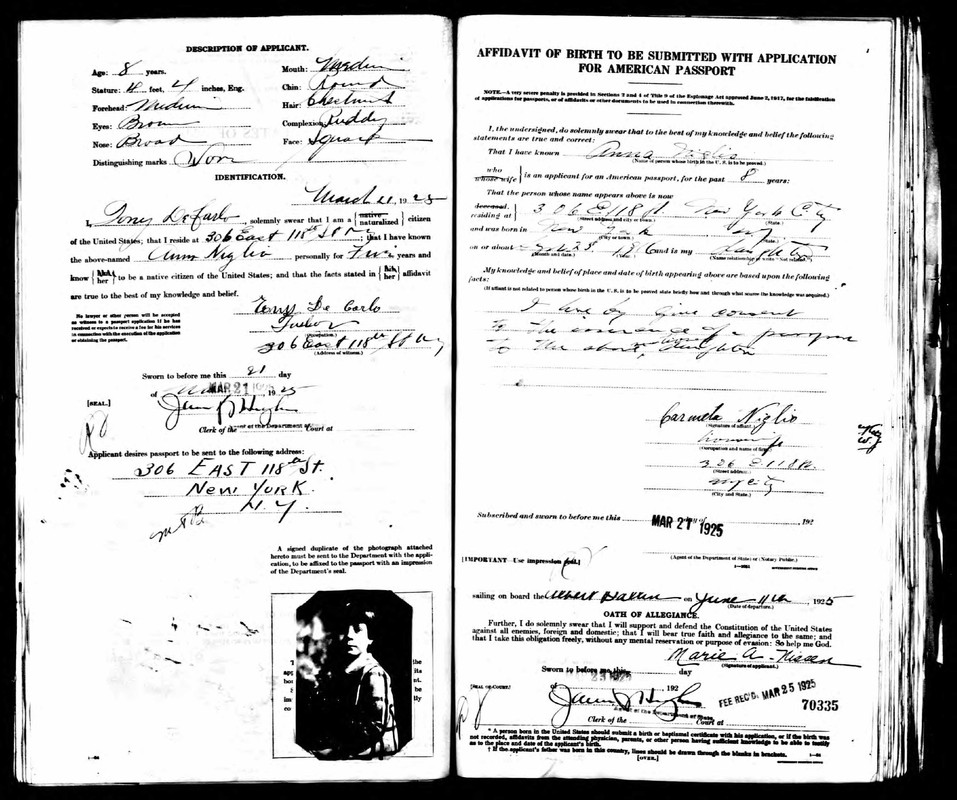 DESCRIPTION OF APPLICANT.
Age: 8 years.
Mouth: Medium
Stature: 4 feet, 4 inches, Eng.
Chin: Round
Forehead: Medium
Hair: Chestnut
Eyes: Brown
Complexion: Ruddy
Nose: Broad
Face: Square
Distinguishing marks
IDENTIFICATION.
March 21, 1925
I, Tony De Carlo, solemnly swear that I am a {native naturalized} citizen
of the United States; that I reside at 306 East 118th St; that I have known
the above-named Anna Niglio personally for years and
know {her} to be a native citizen of the United States; and that the facts stated in {his her} affidavit
are true to the best of my knowledge and belief.
No lawyer or other person will be accepted
as witness to a passport application if he has
received or expects to receive a fee for his services
in connection with the execution of the application
or obtaining the passport.
Tony De Carlo
(Occupation.)
306 East 118th St NY
(Address of witness.)
Sworn to before me this 21 day
of MAR 21 1925
[SEAL.]
Clerk of the Court at
Applicant desires passport to be sent to the following address:
306 EAST 118th St.
NEW YORK.
N.Y.
A signed duplicate of the photograph attached
hereto must be sent to the Department with the appli-
cation, to be affixed to the passport with an impression
of the Department's seal.
AFFIDAVIT OF BIRTH TO BE SUBMITTED WITH APPLICATION
FOR AMERICAN PASSPORT
NOTE.—A very severe penalty is provided in Sections 3 and 4 of Title 9 of the Espionage Act approved June 2, 1917, for the falsification
of applications for passports, or of affidavits or other documents to be used in connection therewith.
I, the undersigned, do solemnly swear that to the best of my knowledge and belief the following
statements are true and correct:
That I have known Anna Niglio
(Name of person whose birth in the U. S. is to be proved.)
{who whose wife} is an applicant for an American passport, for the past 8 years:
That the person whose name appears above is now
{deceased. residing at} 306 E 118 St New York City
(Street address and city or town.) (State.)
and was born in New York
(City or town.) (State.)
on or about and is my daughter
(Month and date.)
My knowledge and belief of place and date of birth appearing above are based upon the following
facts:
(If affiant is not related to person whose birth in the U. S. is to be proved state briefly how and through what source the knowledge was acquired.)
I hereby give consent
to the issuance of a passport
to the above, daughter
Carmela Niglio
(Signature of affiant.)
housewife
(Occupation and name of firm.)
306 E 118 St.
(Street address.)
NY City
(City and State.)
Subscribed and sworn to before me this MAR 21 1925, 192
(Agent of the Department of State) or (Notary Public.)
[IMPORTANT—Use impression seal.]
sailing on board the on June 11th, 1925
(Date of departure.)
OATH OF ALLEGIANCE.
Further, I do solemnly swear that I will support and defend the Constitution of the United States
against all enemies, foreign and domestic; that I will bear true faith and allegiance to the same; and
that I take this obligation freely, without any mental reservation or purpose of evasion: So help me God.
(Signature of applicant.)
Sworn to before me this day
of 192
[SEAL OF COURT.]
FEE REC'D. MAR 25 1925
70335
Clerk of the Court at
* A person born in the United States should submit a birth or baptismal certificate with his application, or if the birth was
not recorded, affidavits from the attending physician, parents, or other person having sufficient knowledge to be able to testify
as to the place and date of the applicant's birth.
† If the applicant's father was born in this country, lines should be drawn through the blanks in brackets.
[OVER.]